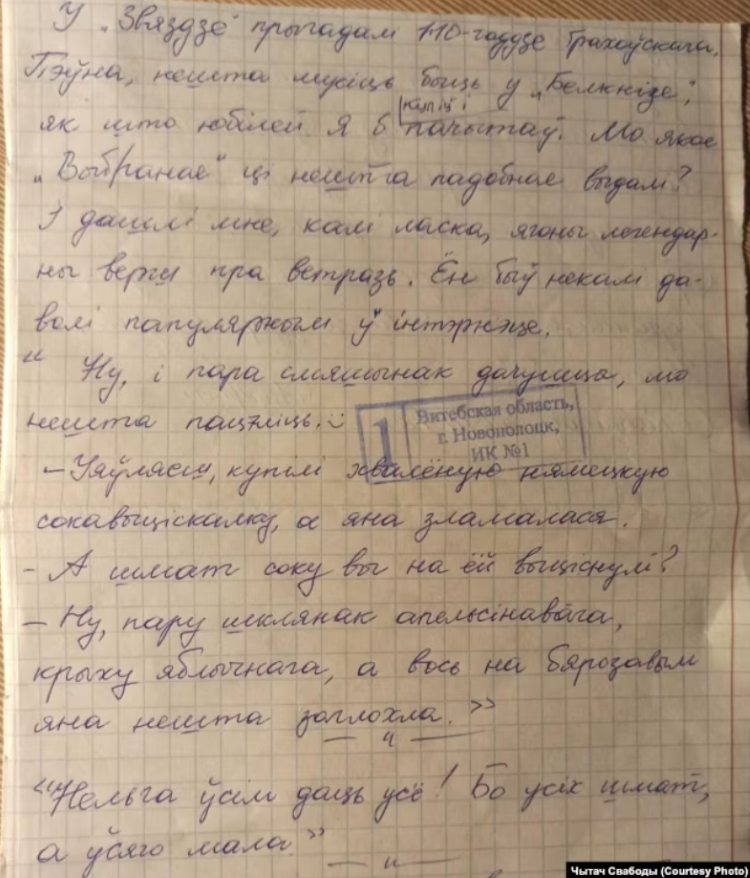 У „Звяздзе" прыгадалі 110-годдзе Грахоўскага.
Пэўна, нешта мусіць быць у „Белкнізе",
купіў і
як што юбілей. Я б пачытаў. Мо якое
„Выбранае" ці нешта падобнае выдалі?
І дашлі мне, калі ласка, ягоны легендар-
ны верш пра ветразь. Ён быў некалі да-
волі папулярным у інтэрнэце.
" Ну, і пара смяшынак дачушца, мо
нешта пацэліць. :)
Витебская область,
г. Новополоцк,
ИК №1
1
– Уяўляеш, купілі хвалёную нямецкую
сокавыціскалку, а яна зламалася.
– А шмат соку вы на ёй выціснулі?
– Ну, пару шклянак апельсінавага,
крыху яблычнага, а вось на бярозавым
яна нешта заглохла. "
— " —
"Нельга ўсім даць усё! Бо усіх шмат,
а ўсяго мала"
— " —
Чытач Свабоды (Courtesy Photo)